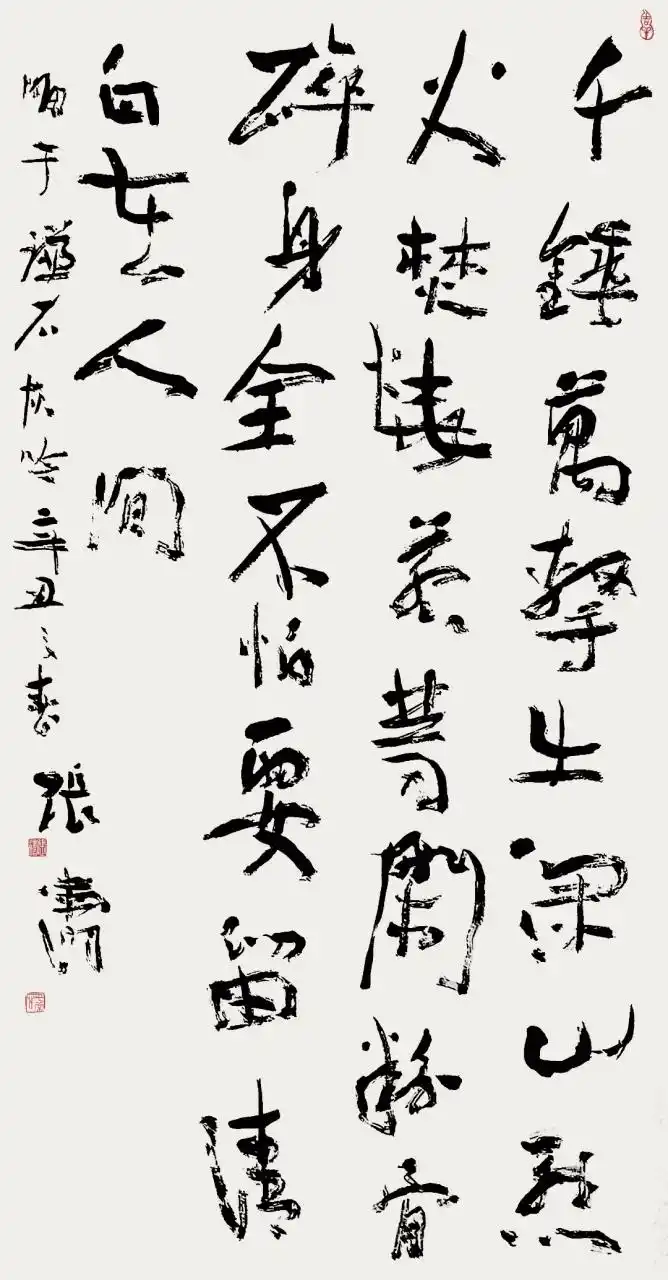 千錘萬擊出深山烈
火焚燒若等閑粉骨
碎身全不怕要留清
白在人間
明于謙石灰吟辛丑之春張